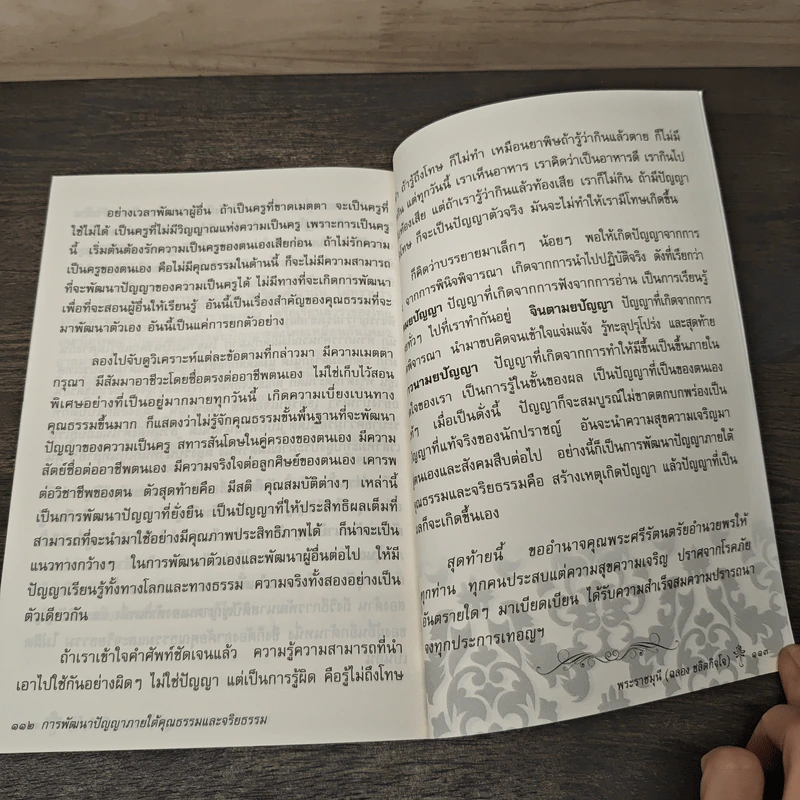 อย่างเวลาพัฒนาผู้อื่น ถ้าเป็นครูที่ขาดเมตตา จะเป็นครูที่
ใช้ไม่ได้ เป็นครูที่ไม่มีวิญญาณแห่งความเป็นครู เพราะการเป็นครู
นี้ เริ่มต้นต้องรักความเป็นครูของตนเองเสียก่อน ถ้าไม่รักความ
เป็นครูของตนเอง คือไม่มีคุณธรรมในด้านนี้ ก็จะไม่มีความสามารถ
ที่จะพัฒนาปัญญาของความเป็นครูได้ ไม่มีทางที่จะเกิดการพัฒนา
เพื่อที่จะสอนผู้อื่นให้เรียนรู้ อันนี้เป็นเรื่องสำคัญของคุณธรรมที่จะ
มาพัฒนาตัวเอง อันนี้เป็นแค่การยกตัวอย่าง
ลองไปจับดูวิเคราะห์แต่ละข้อตามที่กล่าวมา มีความเมตตา
กรุณา มีสัมมาอาชีวะโดยซื่อตรงต่ออาชีพตนเอง ไม่ใช่เก็บไว้สอน
พิเศษอย่างที่เป็นอยู่มากมายทุกวันนี้ เกิดความเบี่ยงเบนทาง
คุณธรรมขึ้นมาก ก็แสดงว่าไม่รู้จักคุณธรรมขั้นพื้นฐานที่จะพัฒนา
ปัญญาของความเป็นครู สทารสันโดษในคู่ครองของตนเอง มีความ
สัตย์ซื่อต่ออาชีพตนเอง มีความจริงใจต่อลูกศิษย์ของตนเอง เคารพ
ต่อวิชาชีพของตน ตัวสุดท้ายคือ มีสติ คุณสมบัติต่างๆ เหล่านี้
เป็นการพัฒนาปัญญาที่ยั่งยืน เป็นปัญญาที่ให้ประสิทธิผลเต็มที่
สามารถที่จะนำมาใช้อย่างมีคุณภาพประสิทธิภาพได้ ก็น่าจะเป็น
แนวทางกว้างๆ ในการพัฒนาตัวเองและพัฒนาผู้อื่นต่อไป ให้มี
ปัญญาเรียนรู้ทั้งทางโลกและทางธรรม ความจริงทั้งสองอย่างเป็น
ตัวเดียวกัน
ถ้าเราเข้าใจคำศัพท์ชัดเจนแล้ว ความรู้ความสามารถที่นำ
เอาไปใช้กันอย่างผิดๆ ไม่ใช่ปัญญา แต่เป็นการรู้ผิด คือรู้ไม่ถึงโทษ
๑๑๒ การพัฒนาปัญญาภายใต้คุณธรรมและจริยธรรม
ถ้ารู้ถึงโทษ ก็ไม่ทำ เหมือนยาพิษถ้ารู้ว่ากินแล้วตาย ก็ไม่มี
แต่ทุกวันนี้ เราเห็นอาหาร เราคิดว่าเป็นอาหารดี เรากินไป
ท้องเสีย แต่ถ้าเรารู้ว่ากินแล้วท้องเสีย เราก็ไม่กิน ถ้ามีปัญญา
ก็จะเป็นปัญญาตัวจริง มันจะไม่ทำให้เรามีโทษเกิดขึ้น
ก็คิดว่าบรรยายมาเล็กๆ น้อยๆ พอให้เกิดปัญญาจากการ
จากการพินิจพิจารณา เกิดจากการนำไปปฏิบัติจริง ดังที่เรียกว่า
มยปัญญา ปัญญาที่เกิดจากการฟังจากการอ่าน เป็นการเรียนรู้
ทั่วๆ ไปที่เราทำกันอยู่ จินตามยปัญญา ปัญญาที่เกิดจากการ
พิจารณา นำมาขบคิดจนเข้าใจแจ่มแจ้ง รู้ทะลุปรุโปร่ง และสุดท้าย
วนามยปัญญา ปัญญาที่เกิดจากการทำให้มีขึ้นเป็นขึ้นภายใน
ใจของเรา เป็นการรู้ในขั้นของผล เป็นปัญญาที่เป็นของตนเอง
เมื่อเป็นดั่งนี้ ปัญญาก็จะสมบูรณ์ไม่ขาดตกบกพร่องเป็น
ญญาที่แท้จริงของนักปราชญ์ อันจะนำความสุขความเจริญมา
ตนเองและสังคมสืบต่อไป อย่างนี้ก็เป็นการพัฒนาปัญญาภายใต้
คุณธรรมและจริยธรรมคือ สร้างเหตุเกิดปัญญา แล้วปัญญาที่เป็น
ลก็จะเกิดขึ้นเอง
สุดท้ายนี้ ขออำนาจคุณพระศรีรัตนตรัยอำนวยพรให้
ทุกท่าน ทุกคนประสบแต่ความสุขความเจริญ ปราศจากโรคภัย
อันตรายใดๆ มาเบียดเบียน ได้รับความสำเร็จสมความปรารถนา
จงทุกประการเทอญฯ
พระราชมุนี (ฉลอง ชลิตกิจฺโจ) ๑๑๓